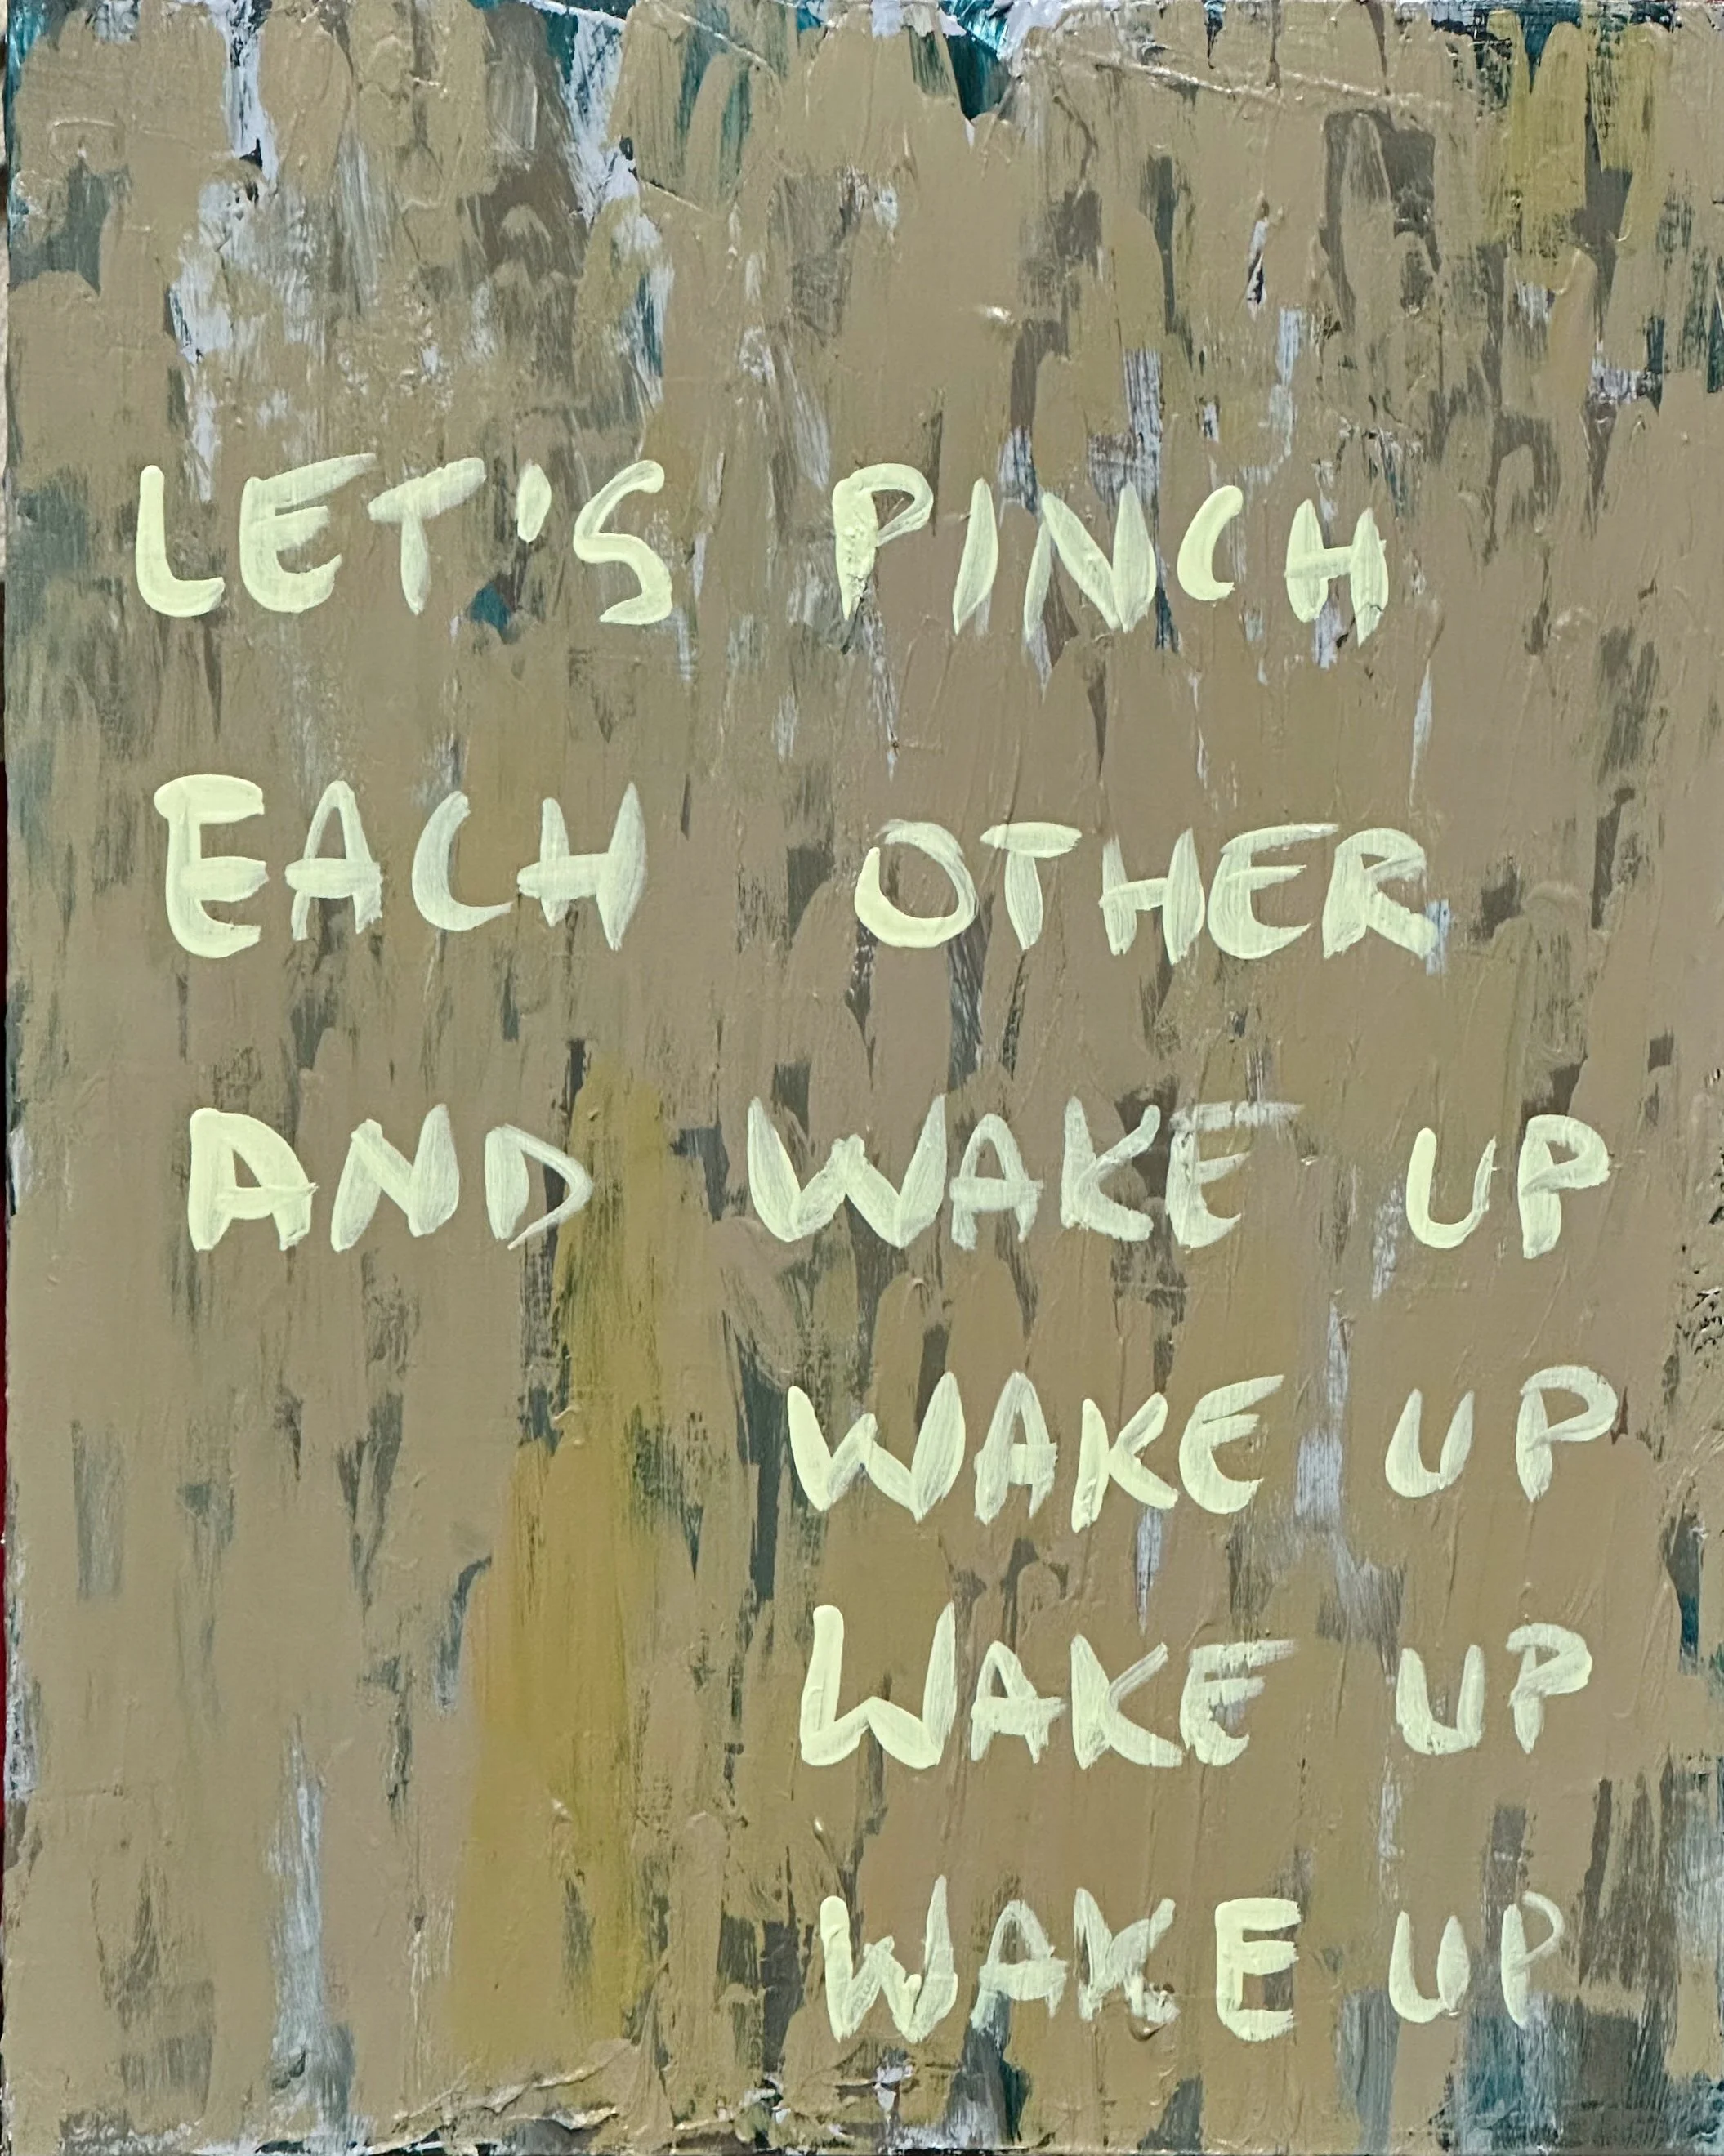 LET'S PINCH
EACH OTHER
AND WAKE UP
WAKE UP
WAKE UP
WAKE UP